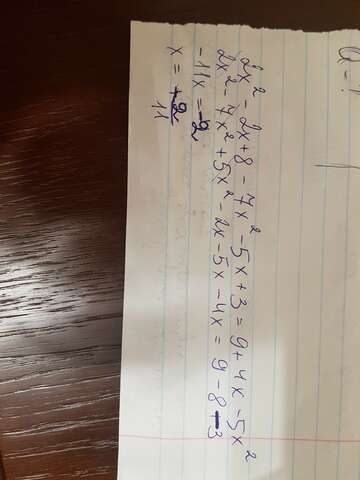 2x² - 2x + 8 - 7x² - 5x + 3 = 9 + 4x - 5x²
2x² - 7x² + 5x² - 2x - 5x - 4x = 9 - 8 - 3
-11x = -2
x = +2/11